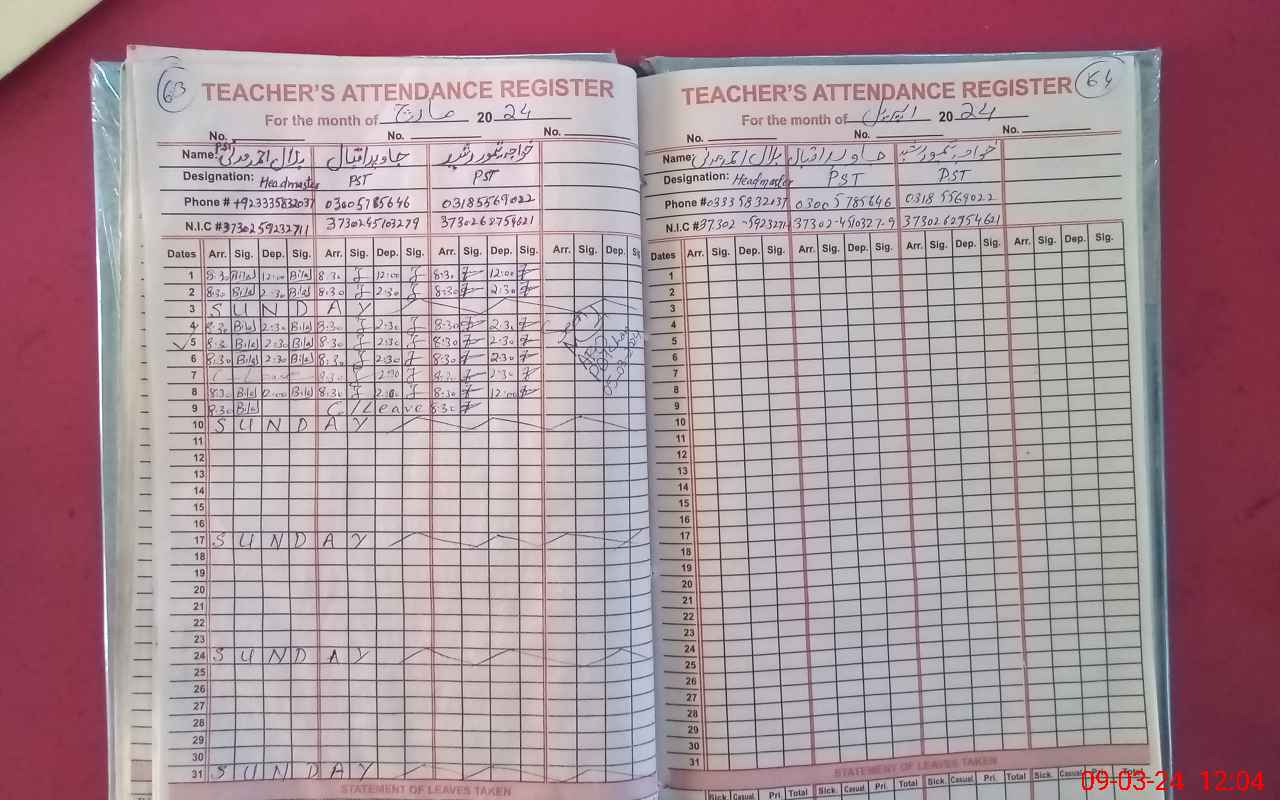 63
TEACHER'S ATTENDANCE REGISTER
For the month of مارچ 20 24
No. No. No.
Name: PST بلال احمد جاوید اقبال خواجہ تیمور رشید
Designation: Headmaster PST PST
Phone # +923335832037 03005785646 03185569022
N.I.C #3730259232711 3730245103279 3730268759621
Dates Arr. Sig. Dep. Sig. Arr. Sig. Dep. Sig. Arr. Sig. Dep. Sig. Arr. Sig. Dep. Sig.
1 8:30 Bilal 12:00 Bilal 8:30 12:00 8:30 12:00
2 8:30 Bilal 2:30 Bilal 8:30 2:30 8:30 2:30
3 SUNDAY
4 8:30 Bilal 2:30 Bilal 8:30 2:30 8:30 2:30
5 8:30 Bilal 2:30 Bilal 8:30 2:30 8:30 2:30
6 8:30 Bilal 2:30 Bilal 8:30 2:30 8:30 2:30
7 Leave 8:30 2:30 8:30 2:30
8 8:30 Bilal Bilal 8:30 8:30 12:00
9 8:30 Bilal C/Leave 8:30
10 SUNDAY
11
12
13
14
15
16
17 SUNDAY
18
19
20
21
22
23
24 SUNDAY
25
26
27
28
29
30
31 SUNDAY
STATEMENT OF LEAVES TAKEN
05-03-2024
64
TEACHER'S ATTENDANCE REGISTER
For the month of اپریل 20 24
No. No. No.
Name: بلال احمد جاوید اقبال خواجہ تیمور رشید
Designation: Headmaster PST PST
Phone # 03335832037 03005785646 03185569022
N.I.C #37302-5923271 37302-4510327-9 3730262954621
Dates Arr. Sig. Dep. Sig. Arr. Sig. Dep. Sig. Arr. Sig. Dep. Sig. Arr. Sig. Dep. Sig.
1
2
3
4
5
6
7
8
9
10
11
12
13
14
15
16
17
18
19
20
21
22
23
24
25
26
27
28
29
30
31
STATEMENT OF LEAVES TAKEN
Sick. Casual. Pri. Total Sick. Casual. Pri. Total Sick. Casual. Pri. Total Sick. Casual. Pri. Total
09-03-24 12:04